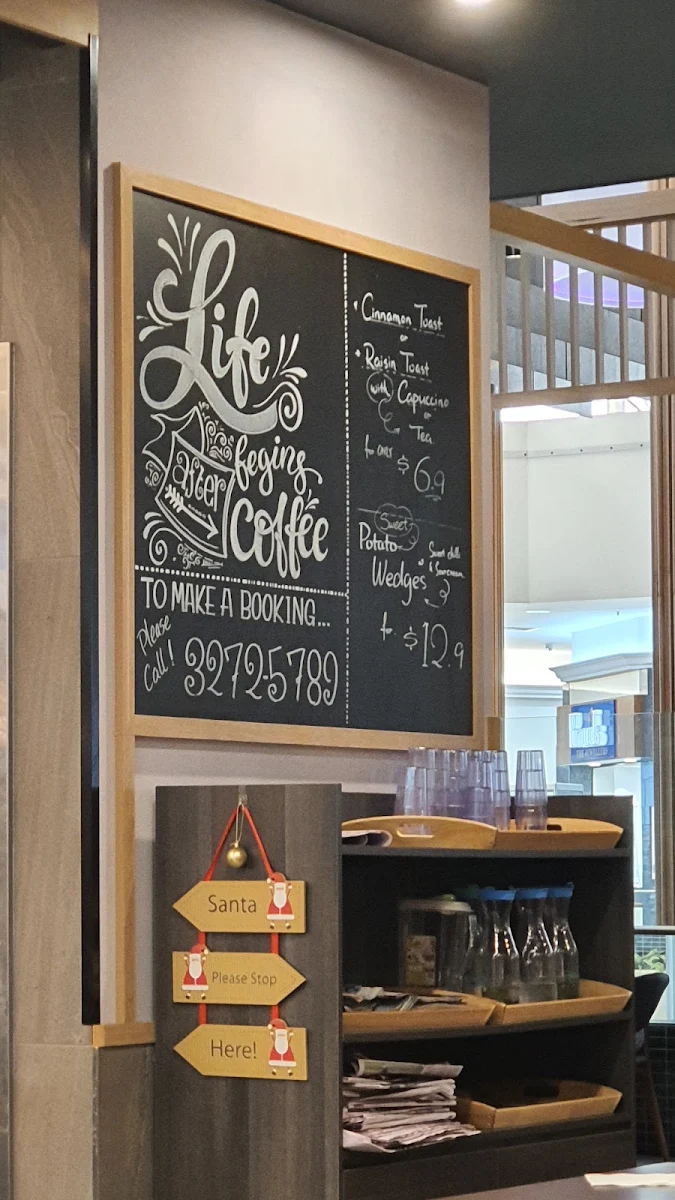 Life
begins
after
Coffee
TO MAKE A BOOKING...
Please
Call!
3272-5789
Cinnamon Toast
or
Raisin Toast
with Capuccino
or
Tea
for only
$6.9
Sweet
Potato
Wedges
Sweet chilli
& Sour cream
for $12.9
Santa
Please Stop
Here!